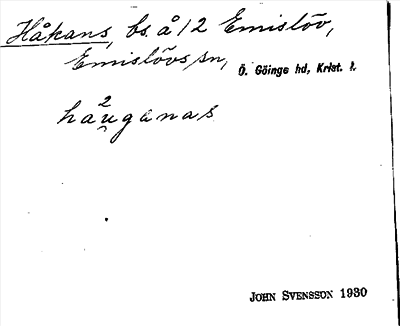 Håkans, bs. å 12 Emislöv,
Emislövs sn, Ö. Göinge hd, Krist. l.
ha²u̯ganas
JOHN SVENSSON 1930